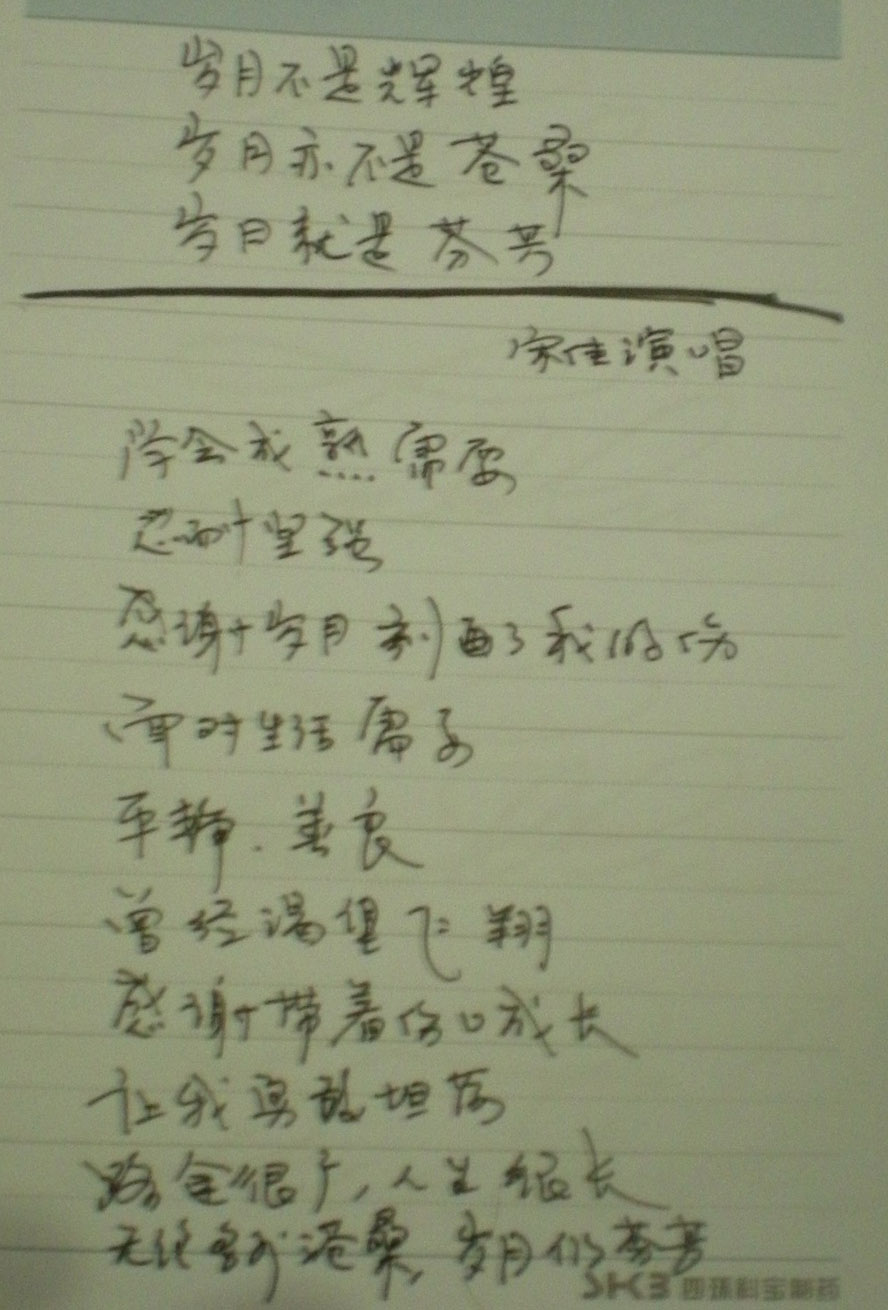 岁月不是辉煌
岁月亦不是苍桑
岁月就是芬芳
宋佳演唱
学会成熟需要
忍耐坚强
感谢岁月刻画了我的伤
面对生活需要
平静.善良
曾经渴望飞翔
感谢带着伤口成长
让我勇敢坦荡
路会很宽,人生很长
无论多少沧桑,岁月仍芬芳
SK3 四环科宝制药